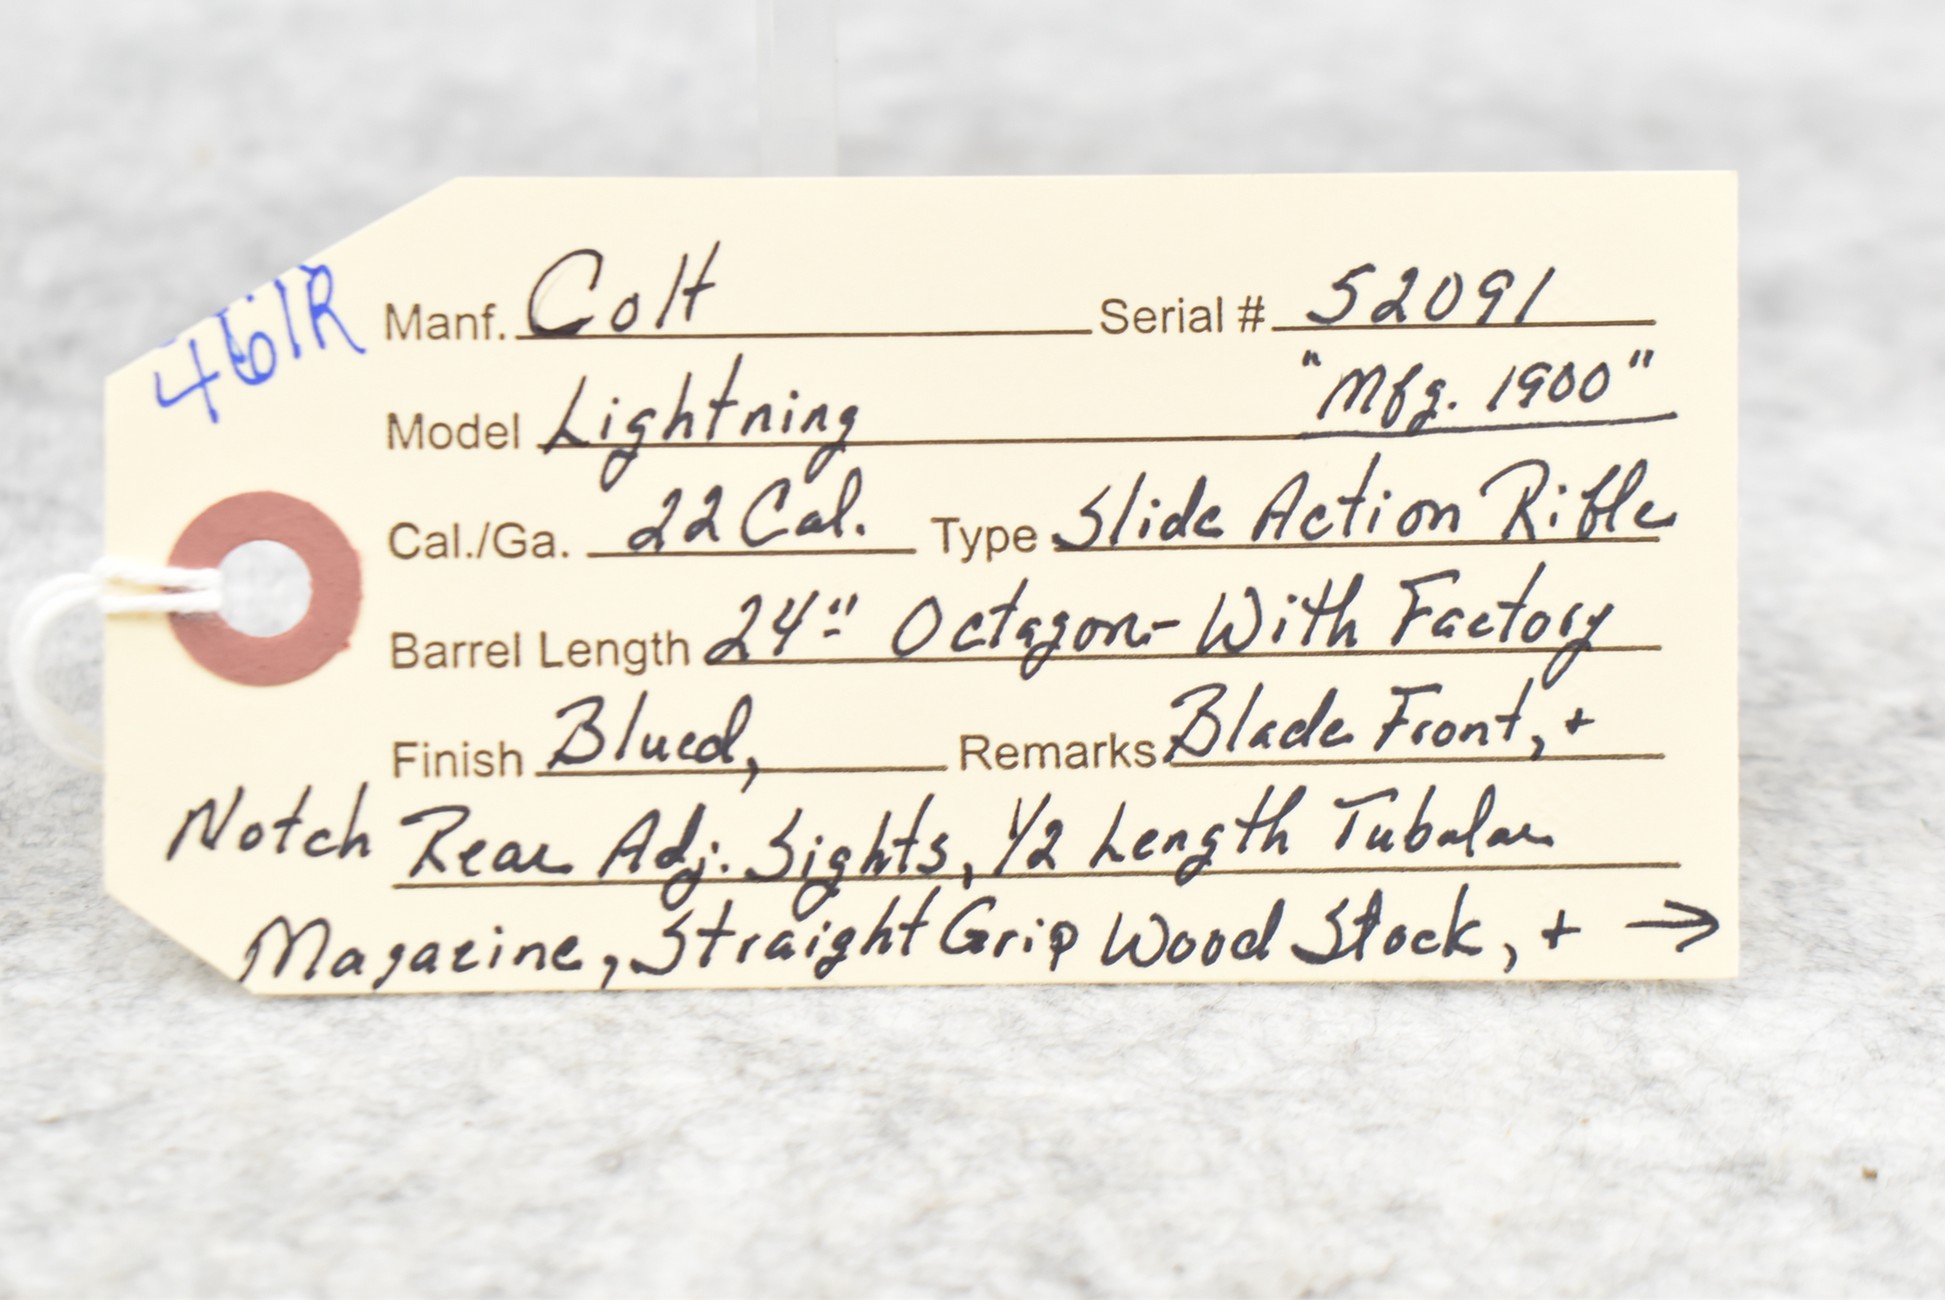 461R
Manf. Colt Serial # 52091
Model Lightning "Mfg. 1900"
Cal./Ga. 22 Cal. Type Slide Action Rifle
Barrel Length 24" Octagon - With Factory
Finish Blued, Remarks Blade Front, +
Notch Rear Adj. Sights, 1/2 Length Tubular
Magazine, Straight Grip Wood Stock, + →